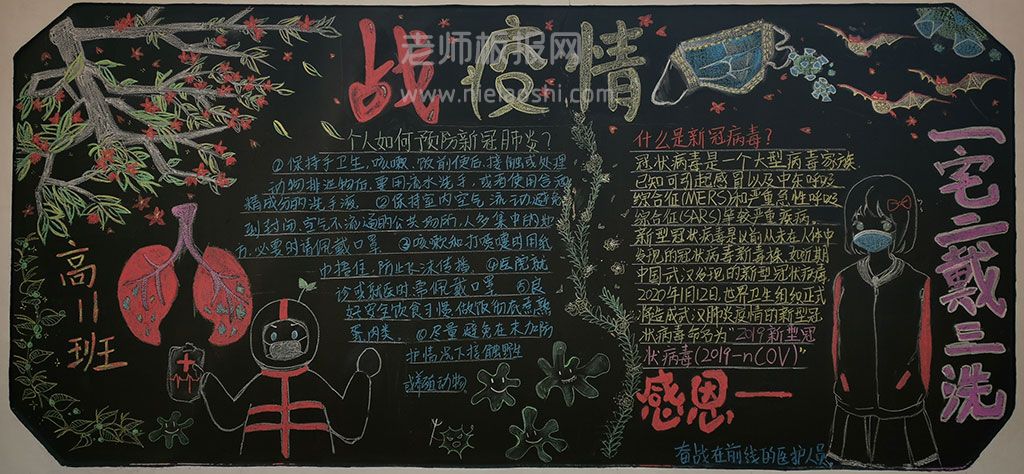 战疫情
老师板报网
www.meilaoshi.com
个人如何预防新冠肺炎?
①保持手卫生,咳嗽、饭前便后、接触或处理
动物排泄物后,要用流水洗手,或者使用含酒
精成分的洗手液. ②保持室内空气流动避免
到封闭、空气不流通的公共场所,人多集中的地
方,必要时请佩戴口罩 ③咳嗽和打喷嚏时用纸
巾捂住,防止飞沫传播. ④医院就
诊或就医时要佩戴口罩 ⑤良
好安全饮食习惯,做饭时
蛋肉类. ⑥尽量避免在未加防
护情况下接触野生
或养殖动物
什么是新冠病毒?
冠状病毒是一个大型病毒家族
已知可引起感冒以及中东呼吸
综合征(MERS)和严重急性呼吸
综合征(SARS)等较严重疾病.
新型冠状病毒是以前从未在人体中
发现的冠状病毒新毒株,如近期
中国武汉发现的新型冠状病毒
2020年1月12日,世界卫生组织正式
将造成武汉肺炎疫情的新型冠
状病毒命名为"2019新型冠
状病毒(2019-nCOV)"
感恩一
奋战在前线的医护人员
一宅二戴三洗
高11班